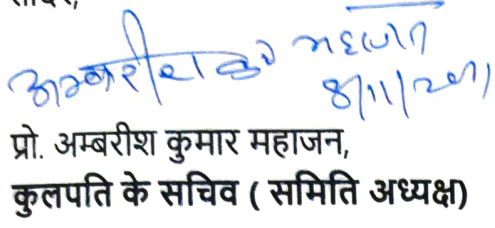 अम्बरीश कु महाजन
8/11/2021
प्रो. अम्बरीश कुमार महाजन,
कुलपति के सचिव ( समिति अध्यक्ष)